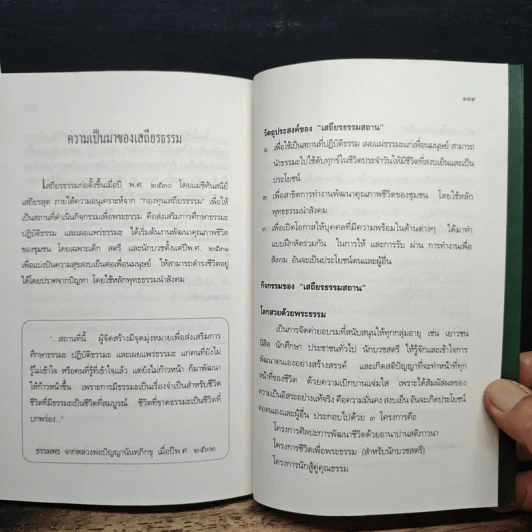 ความเป็นมาของเสถียรธรรม
เสถียรธรรมก่อตั้งขึ้นเมื่อปี พ.ศ. ๒๕๓๐ โดยแม่ชีศันสนีย์
เสถียรสุต ภายใต้ความอนุเคราะห์จาก "กองทุนเสถียรธรรม" เพื่อให้
เป็นสถานที่ดำเนินกิจกรรมเพื่อพระธรรม คือส่งเสริมการศึกษาธรรมะ
ปฏิบัติธรรม และเผยแพร่ธรรมะ ได้เริ่มต้นงานพัฒนาคุณภาพชีวิต
ของชุมชน โดยเฉพาะเด็ก สตรี และนักบวชตั้งแต่ปีพ.ศ. ๒๕๓๑
เพื่อแบ่งปันความสุขสงบเย็นต่อเพื่อนมนุษย์ ให้สามารถดำรงชีวิตอยู่
ได้โดยปราศจากปัญหา โดยใช้หลักพุทธธรรมนำสังคม
"...สถานที่นี้ ผู้จัดสร้างมีจุดมุ่งหมายเพื่อส่งเสริมการ
ศึกษาธรรมะ ปฏิบัติธรรมะ และเผยแพร่ธรรมะ แก่คนที่ยังไม่
รู้ไม่เข้าใจ หรือคนที่รู้ที่เข้าใจแล้ว แต่ยังไม่ก้าวหน้า ก็มาพัฒนา
ให้ก้าวหน้าขึ้น เพราะการมีธรรมะเป็นเรื่องจำเป็นสำหรับชีวิต
ชีวิตที่มีธรรมะเป็นชีวิตที่สมบูรณ์ ชีวิตที่ขาดธรรมะเป็นชีวิตที่
บกพร่อง..."
ธรรมพร จากหลวงพ่อปัญญานันทภิกขุ เมื่อปีพ.ศ. ๒๕๓๒
วัตถุประสงค์ของ "เสถียรธรรมสถาน"
๑. เพื่อใช้เป็นสถานที่ปฏิบัติธรรม เผยแผ่ธรรมะแก่เพื่อนมนุษย์ สามารถ
นำธรรมะไปใช้ดับทุกข์ในชีวิตประจำวันให้มีชีวิตที่สงบเย็นและเป็น
ประโยชน์
๒. เพื่อสาธิตการทำงานพัฒนาคุณภาพชีวิตของชุมชน โดยใช้หลัก
พุทธธรรมนำสังคม
๓. เพื่อเปิดโอกาสให้บุคคลที่มีความพร้อมในด้านต่างๆ ได้มาทำ
แบบฝึกหัดร่วมกัน ในการให้ และการรับ ผ่าน การทำงานเพื่อ
สังคม อันจะเป็นประโยชน์ตนและผู้อื่น
กิจกรรมของ "เสถียรธรรมสถาน"
โลกสวยด้วยพระธรรม
เป็นการจัดค่ายอบรมที่สนับสนุนให้ทุกกลุ่มอายุ เช่น เยาวชน
นิสิต นักศึกษา ประชาชนทั่วไป นักบวชสตรี ให้รู้จักและเข้าใจการ
พัฒนาตนเองอย่างสร้างสรรค์ และเกิดสติปัญญาที่จะทำหน้าที่ทุก
หน้าที่ของชีวิต ด้วยความเบิกบานแจ่มใส เพราะได้สัมผัสผลของ
ความเป็นอิสระอย่างแท้จริง คือความมั่นคง สงบเย็น อันจะเกิดประโยชน์
ต่อตนเองและผู้อื่น ประกอบไปด้วย ๓ โครงการคือ
โครงการศิลปะการพัฒนาชีวิตด้วยอานาปานสติภาวนา
โครงการชีวิตเพื่อพระธรรม (สำหรับนักบวชสตรี)
โครงการนักสู้คู่คุณธรรม